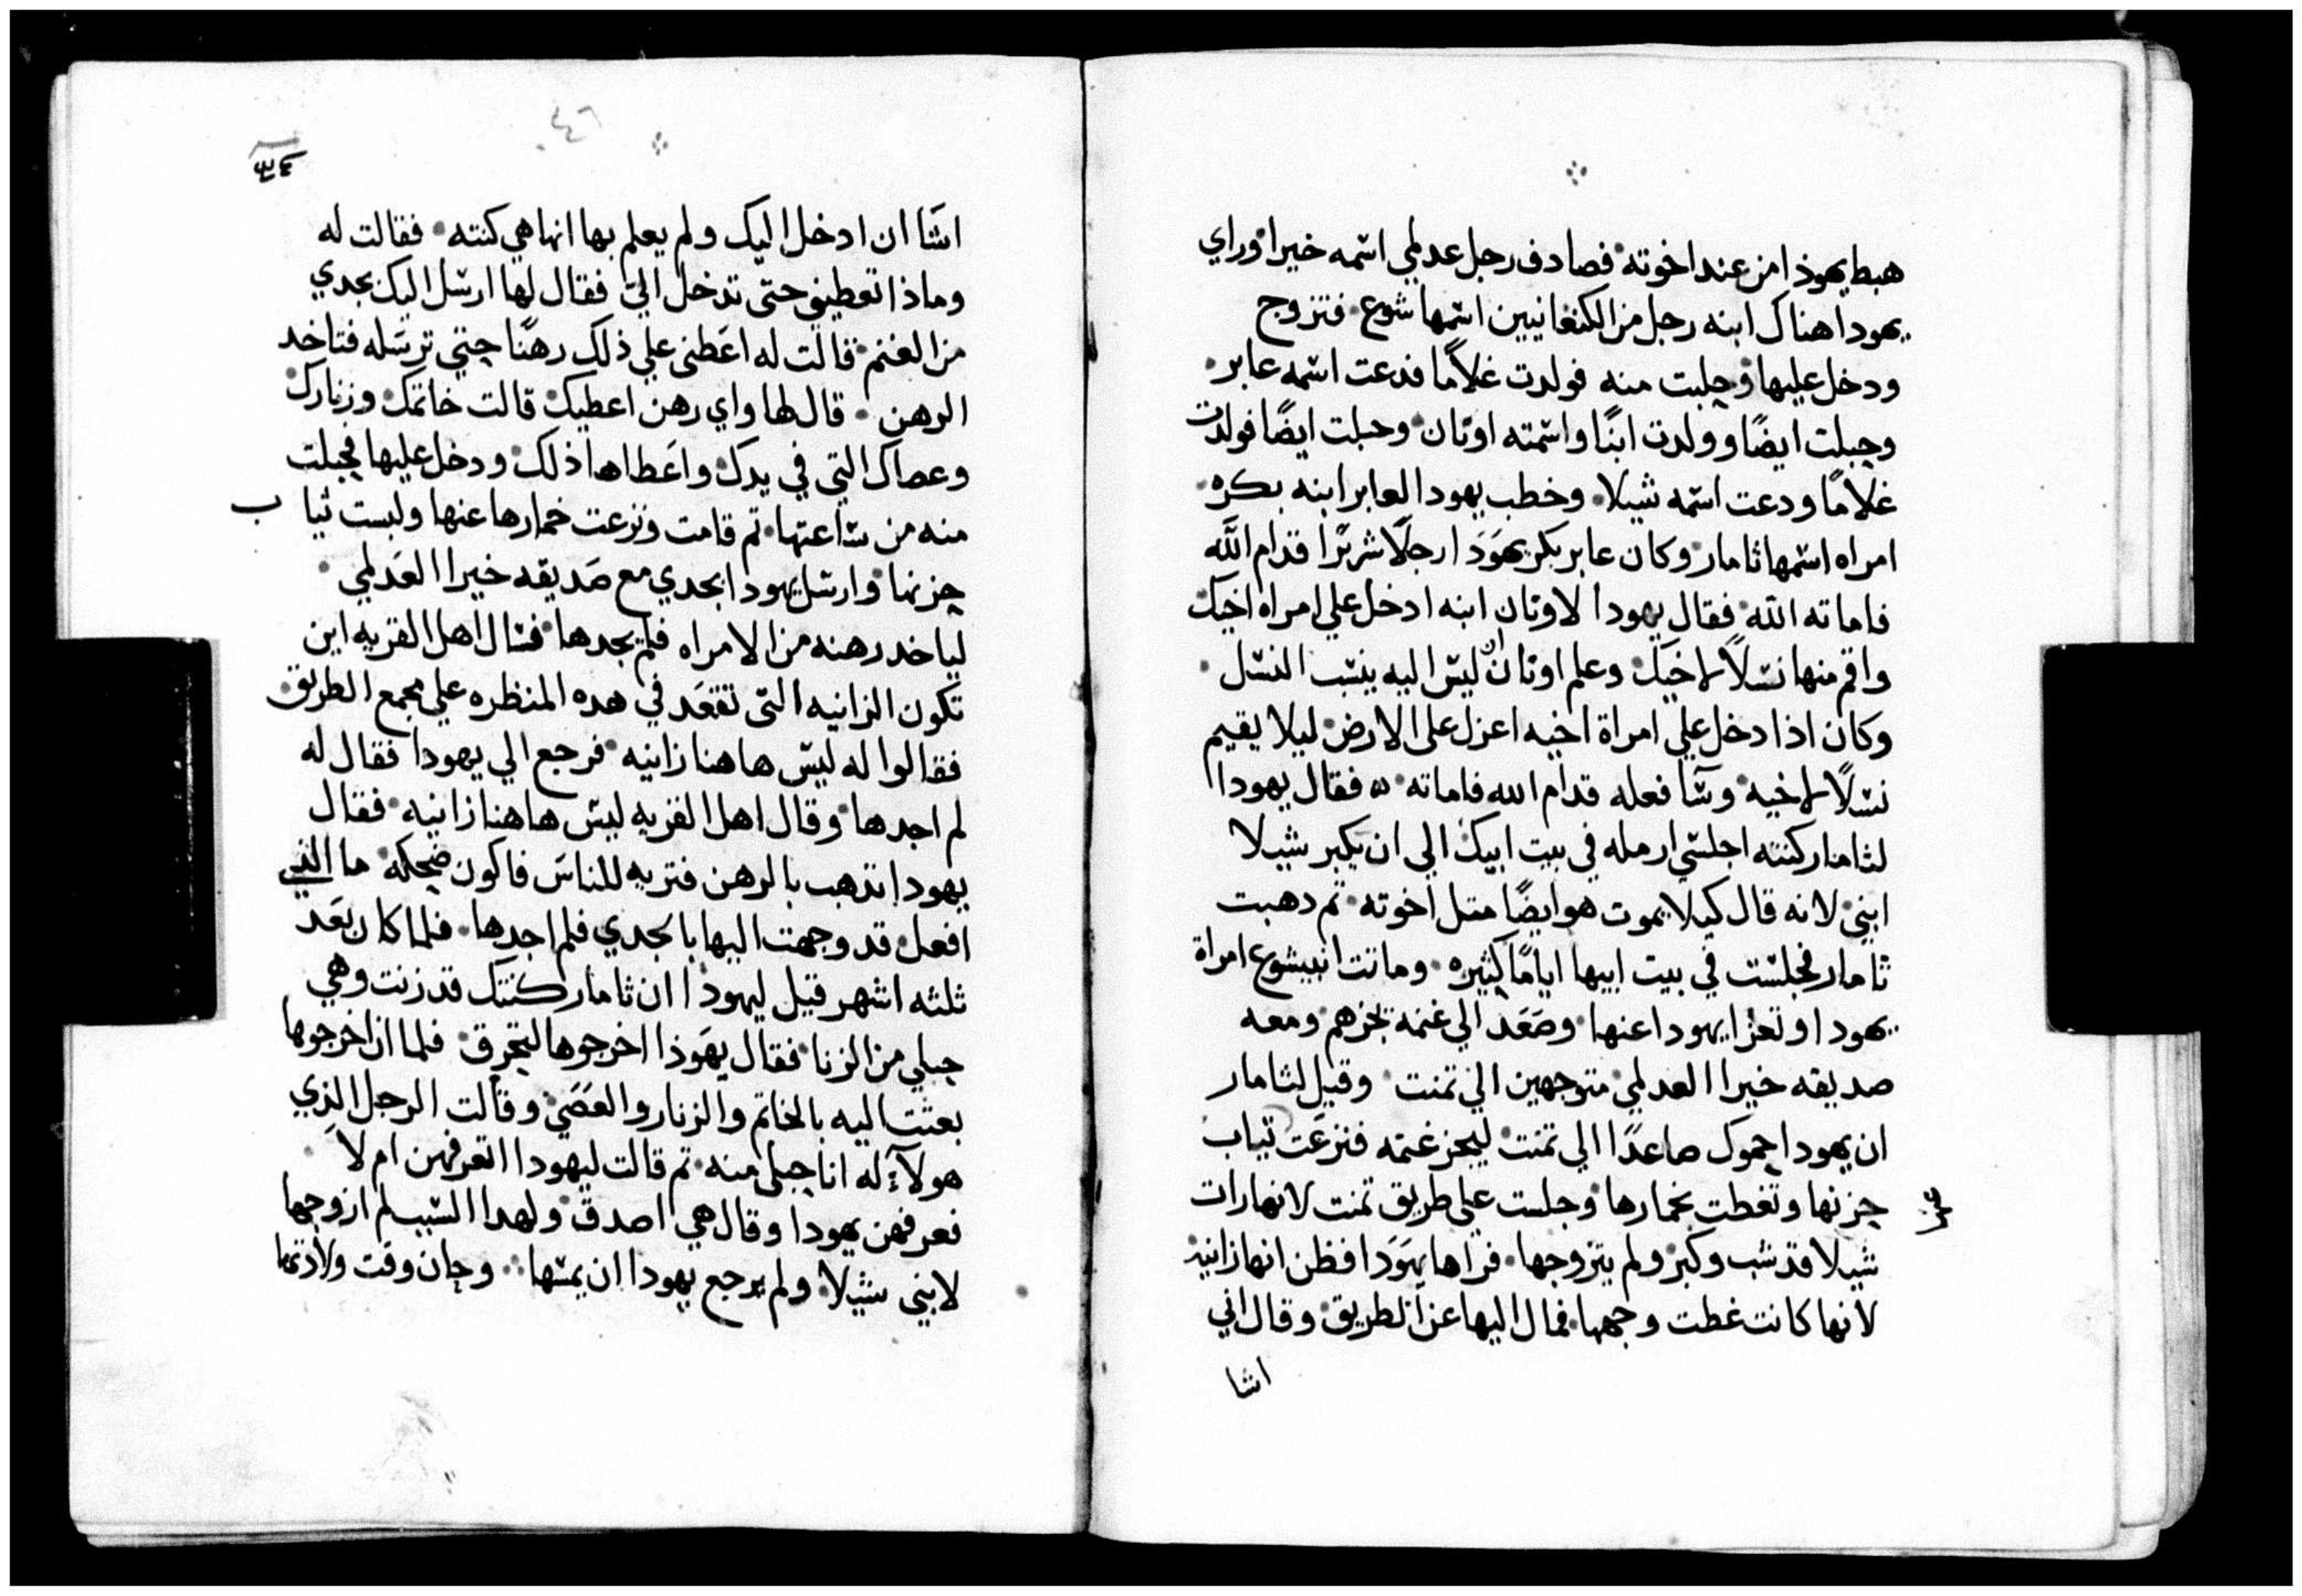 هبط يهوذا من عند اخوته فصادف رجل عدلمي اسمه خيرا وراي
يهودا هناك ابنه رجل من الكنعانيين اسمها شوع فتزوج
ودخل عليها وحبلت منه فولدت غلامًا فدعت اسمه عابر
وحبلت ايضًا وولدت ابنًا واسمته اونان وحبلت ايضًا فولدت
غلامًا ودعت اسمه شيلا وخطب يهودا لعابر ابنه بكره
امراه اسمها ثامار وكان عابر بكر يهودا رجلًا شريرًا قدام الله
فاماته الله فقال يهودا لاونان ابنه ادخل علي امراة اخيك
واقم منها نسلًا لاخيك وعلم اونان ان ليس اليه ينسب النسل
وكان اذا دخل علي امراة اخيه اعزل على الارض ليلا يقيم
نسلًا لاخيه وسا فعله قدام الله فاماته فقال يهودا
لثامار كنته اجلسي ارمله في بيت ابيك الي ان يكبر شيلا
ابني لانه قال كيلا يموت هو ايضًا متل اخوته تم دهبت
ثامار فجلست في بيت ابيها ايامًا كثيره وماتت ابنيشوع امراة
يهودا وتعزا يهودا عنها وصعد الي غنمه تجزهم ومعه
صديقه خيرا العدلمي متوجهين الي تمنت وقيل لثامار
ان يهودا حموك صاعدًا الي تمنت ليجز غنمه فنزعت تياب
حزنها وتغطت بخمارها وجلست على طريق تمنت لانها رات
شيلا قد شب وكبر ولم يتزوجها فراها يهودا فظن انها زانيه
لانها كانت غطت وجهها فمال اليها عن الطريق وقال اني
اشا
٤٦
اشا ان ادخل اليك ولم يعلم بها انها هي كنته فقالت له
وماذا تعطيني حتى تدخل الي فقال لها ارسل اليك بجدي
من الغنم قالت له اعطني علي ذلك رهنًا حتي ترسله فتاخد
الرهن قال لها واي رهن اعطيك قالت خاتمك وزنارك
وعصاك التي في يدك واعطاها ذلك ودخل عليها فحبلت
منه من ساعتها تم قامت ونزعت خمارها عنها ولبست ثياب
حزنها وارسل يهودا بجدي مع صديقه خيرا العدلمي
لياخد رهنه من الامراه فلم يجدها فسال اهل القريه اين
تكون الزانيه التى تقعد في هده المنظره علي مجمع الطريق
فقالوا له ليس هاهنا زانيه فرجع الي يهودا فقال له
لم اجدها وقال اهل القريه ليس هاهنا زانيه فقال
يهودا تدهب بالرهن فتريه للناس فاكون ضحكه ما الذي
افعل قد وجهت اليها بالجدي فلم اجدها فلما كان بعد
ثلثه اشهر قيل ليهودا ان ثامار كنتك قد زنت وهي
حبلي من الزنا فقال يهوذا اخرجوها لتحرق فلما ان اخرجوها
بعثت اليه بالخاتم والزنار والعصي وقالت الرجل الذي
هولآء له انا حبلى منه تم قالت ليهودا اتعرفهن ام لا
فعرفهن يهودا وقال هي اصدق ولهدا السبب لم ازوجها
لابني شيلا ولم يرجع يهودا ان يمسها وحان وقت ولادتها